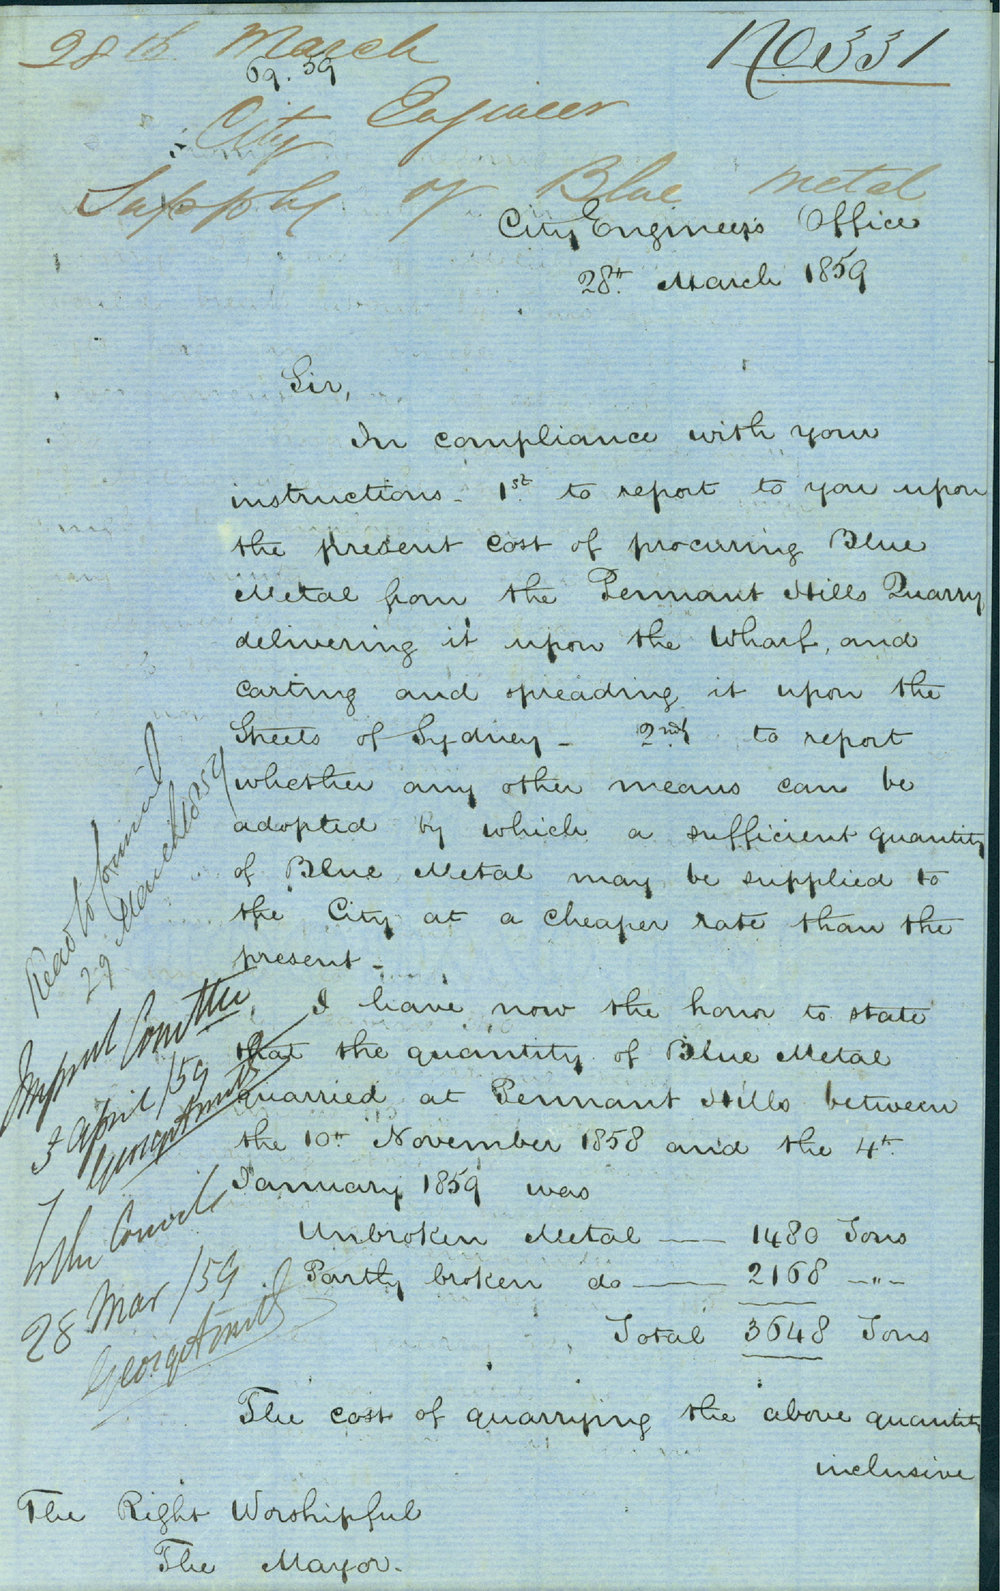 28th March
09.59
No 331
City Engineer
Supply of Blue Metal
City Engineer's Office
28th March 1859
Sir,
In compliance with your
instructions - 1st to report to you upon
the present cost of procuring Blue
Metal from the Pennant Hills Quarry
delivering it upon the Wharf, and
carting and spreading it upon the
Streets of Sydney - 2ndly to report
whether any other means can be
adopted by which a sufficient quantity
of Blue Metal may be supplied to
the City at a cheaper rate than the
present -
I have now the honor to state
that the quantity of Blue Metal
quarried at Pennant Hills between
the 10th November 1858 and the 4th
January 1859 was
Unbroken Metal — 1480 Tons
Partly broken do — 2168 -"-
Total 3648 Tons
The cost of quarrying the above quantity
inclusive
The Right Worshipful
The Mayor.
Read to Council
29 March 1859
Impvt Comttee
5 April /59
George A Smith
To the Council
28 Mar /59
George Smith